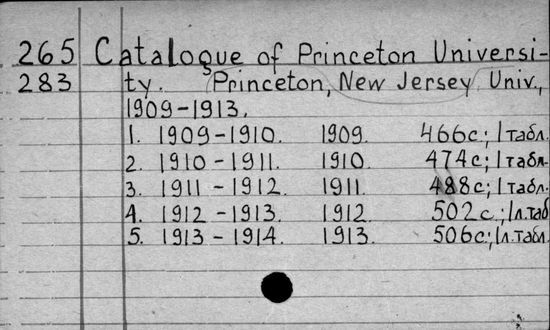 265 Catalogue of Princeton Universi-
283 ty. Princeton, New Jersey Univ.,
1909-1913.
1. 1909-1910. 1909. 466с.; 1 табл.
2. 1910-1911. 1910. 474с; 1 табл.
3. 1911-1912. 1911. 488с; 1 табл.
4. 1912-1913. 1912. 502с.; 1л. таб
5. 1913-1914. 1913. 506с.; 1л. табл.